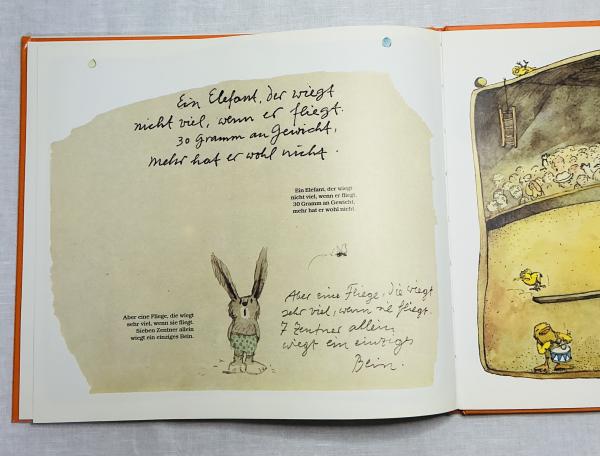 Ein Elefant, der wiegt
nicht viel, wenn er fliegt.
30 Gramm an Gewicht,
mehr hat er wohl nicht.
Ein Elefant, der wiegt
nicht viel, wenn er fliegt.
30 Gramm an Gewicht,
mehr hat er wohl nicht.
Aber eine Fliege, die wiegt
sehr viel, wenn sie fliegt.
Sieben Zentner allein
wiegt ein einziges Bein.
Aber eine Fliege, die wiegt
sehr viel, wenn sie fliegt.
7 Zentner allein,
wiegt ein einzigs
Bein.